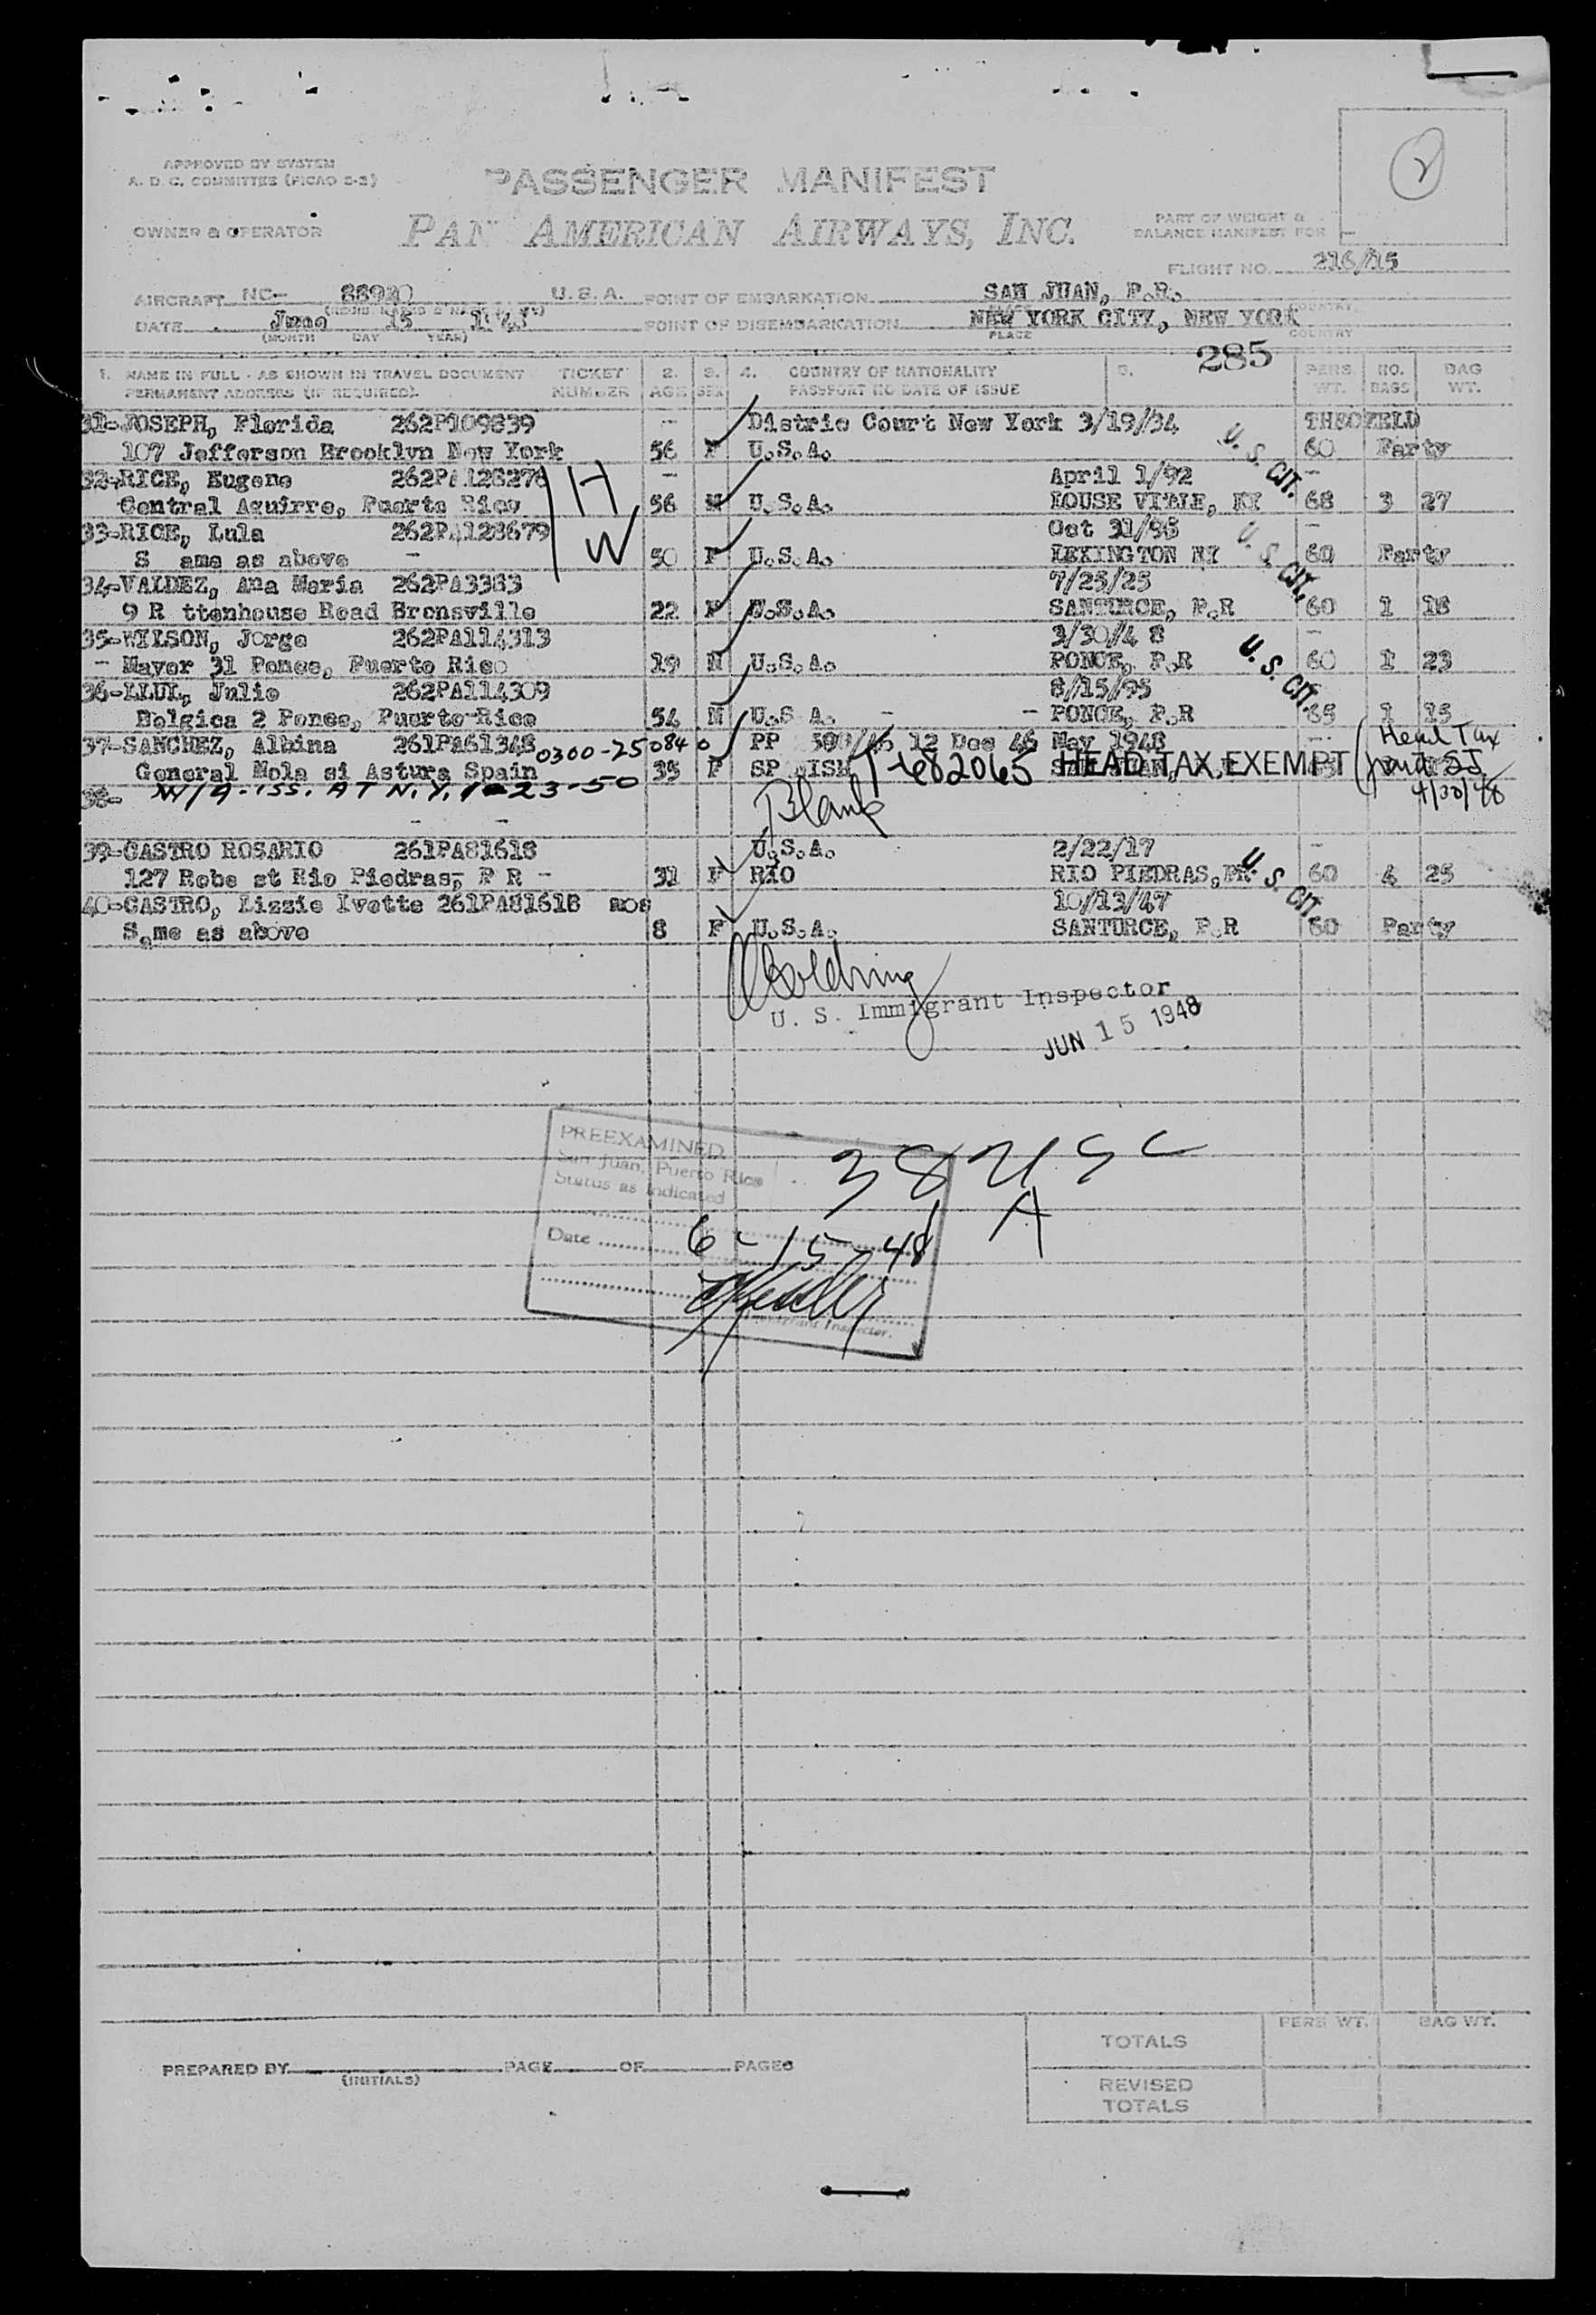 APPROVED BY SYSTEM
A. D. C. COMMITTEE (PICAO 2-2)
PASSENGER MANIFEST
2
OWNER & OPERATOR
PAN AMERICAN AIRWAYS, INC.
PART OF WEIGHT &
BALANCE MANIFEST FOR
FLIGHT NO. 216/15
AIRCRAFT NC- 88920 U.S.A. POINT OF EMBARKATION SAN JUAN, P.R.
DATE June 15 POINT OF DISEMBARKATION NEW YORK CITY, NEW YORK
(MONTH DAY YEAR) PLACE COUNTRY
285
1. NAME IN FULL - AS SHOWN IN TRAVEL DOCUMENT TICKET 2. 3. 4. COUNTRY OF NATIONALITY 5. PERS. NO. BAG
PERMANENT ADDRESS (IF REQUIRED). NUMBER AGE SEX PASSPORT NO DATE OF ISSUE WT. BAGS WT.
31-JOSEPH, Florida 262P109839 - Distric Court New York 3/19/34
107 Jefferson Brooklyn New York 56 F U.S.A. U. S. CIT. 60 Party
32-RICE, Eugene - April 1/92 -
Central Aguirre, Puerto Rico H 56 M U.S.A. 68 3 27
33-RICE, Lula 262PA128679 Oct 31/98 -
S ame as above - W 50 F U.S.A. LEXINGTON KY U. S. CIT. 60 Party
34-VALDEZ, Ana Maria 262PA3383 7/25/25
9 R ttenhouse Road Bronsville 22 F U.S.A. SANTURCE, P.R 60 1 18
35-WILSON, Jorge 262PA114313 3/30/4 8 -
- Mayor 31 Ponce, Puerto Rico 19 M U.S.A. PONCE, P.R U. S. CIT. 60 1 23
36-LLUL, Julio 262PA114309 8/15/93
Belgica 2 Ponce, Puerto Rico 54 M U.S A. - - PONCE, P.R 65 1 15
37-SANCHEZ, Albina 261PA61348 0300-25084 0 PP 12 Dec 46 May 1948 Head Tax
General Mola si Astura Spain F HEAD TAX EXEMPT paid SJ
38- W/A iss. AT N.Y. 4/30/48
Blank
39-CASTRO ROSARIO 261PA81618 U.S.A. 2/22/17 -
127 Robe st Rio Piedras, P R - 31 F RIO RIO PIEDRAS, PR U. S. CIT. 60 4 25
40-CASTRO, Lizzie Ivette 261PA81618 mos 10/13/47
Same as above 8 F U.S.A. SANTURCE, P.R 60 Party
U. S. Immigrant Inspector
JUN 15 1948
PREEXAMINED
San Juan, Puerto Rico
Status as Indicated
38 USC
1 A
Date 6-15-48
Immigrant Inspector.
TOTALS PERS WT. BAG WT.
PREPARED BY PAGE OF PAGES
(INITIALS)
REVISED
TOTALS